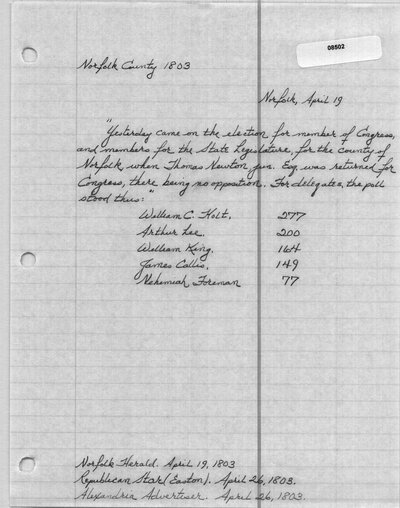 08502
Norfolk County 1803
Norfolk, April 19
"Yesterday came on the election for member of Congress,
and members for the State Legislature, for the county of
Norfolk, when Thomas Newton jun. Esq. was returned for
Congress, there being no opposition. For delegates, the poll
stood thus:"
William C. Holt, 277
Arthur Lee, 200
William King, 164
James Collis, 149
Nehemiah Foreman 77
Norfolk Herald. April 19, 1803
Republican Star (Easton). April 26, 1803.
Alexandria Advertiser. April 26, 1803.